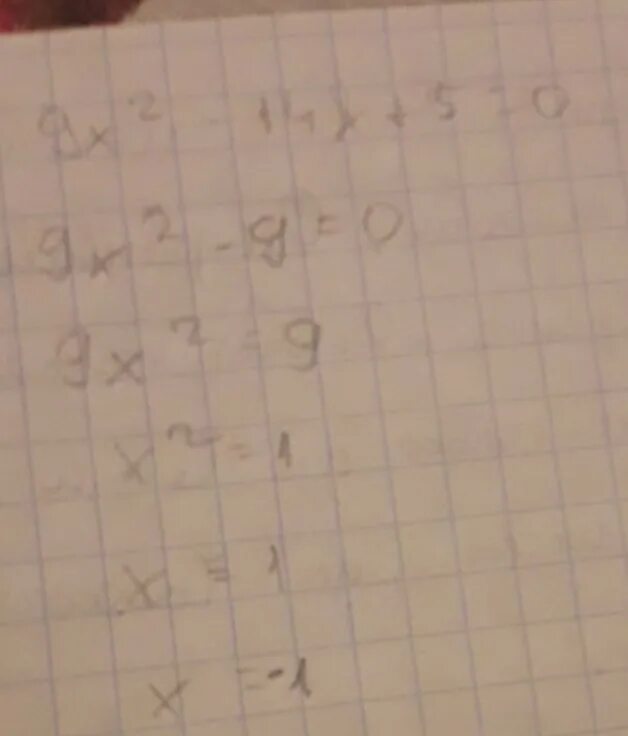 9x² - 14x + 5 = 0
9x² - 9 = 0
9x² = 9
x² = 1
x = 1
x = -1